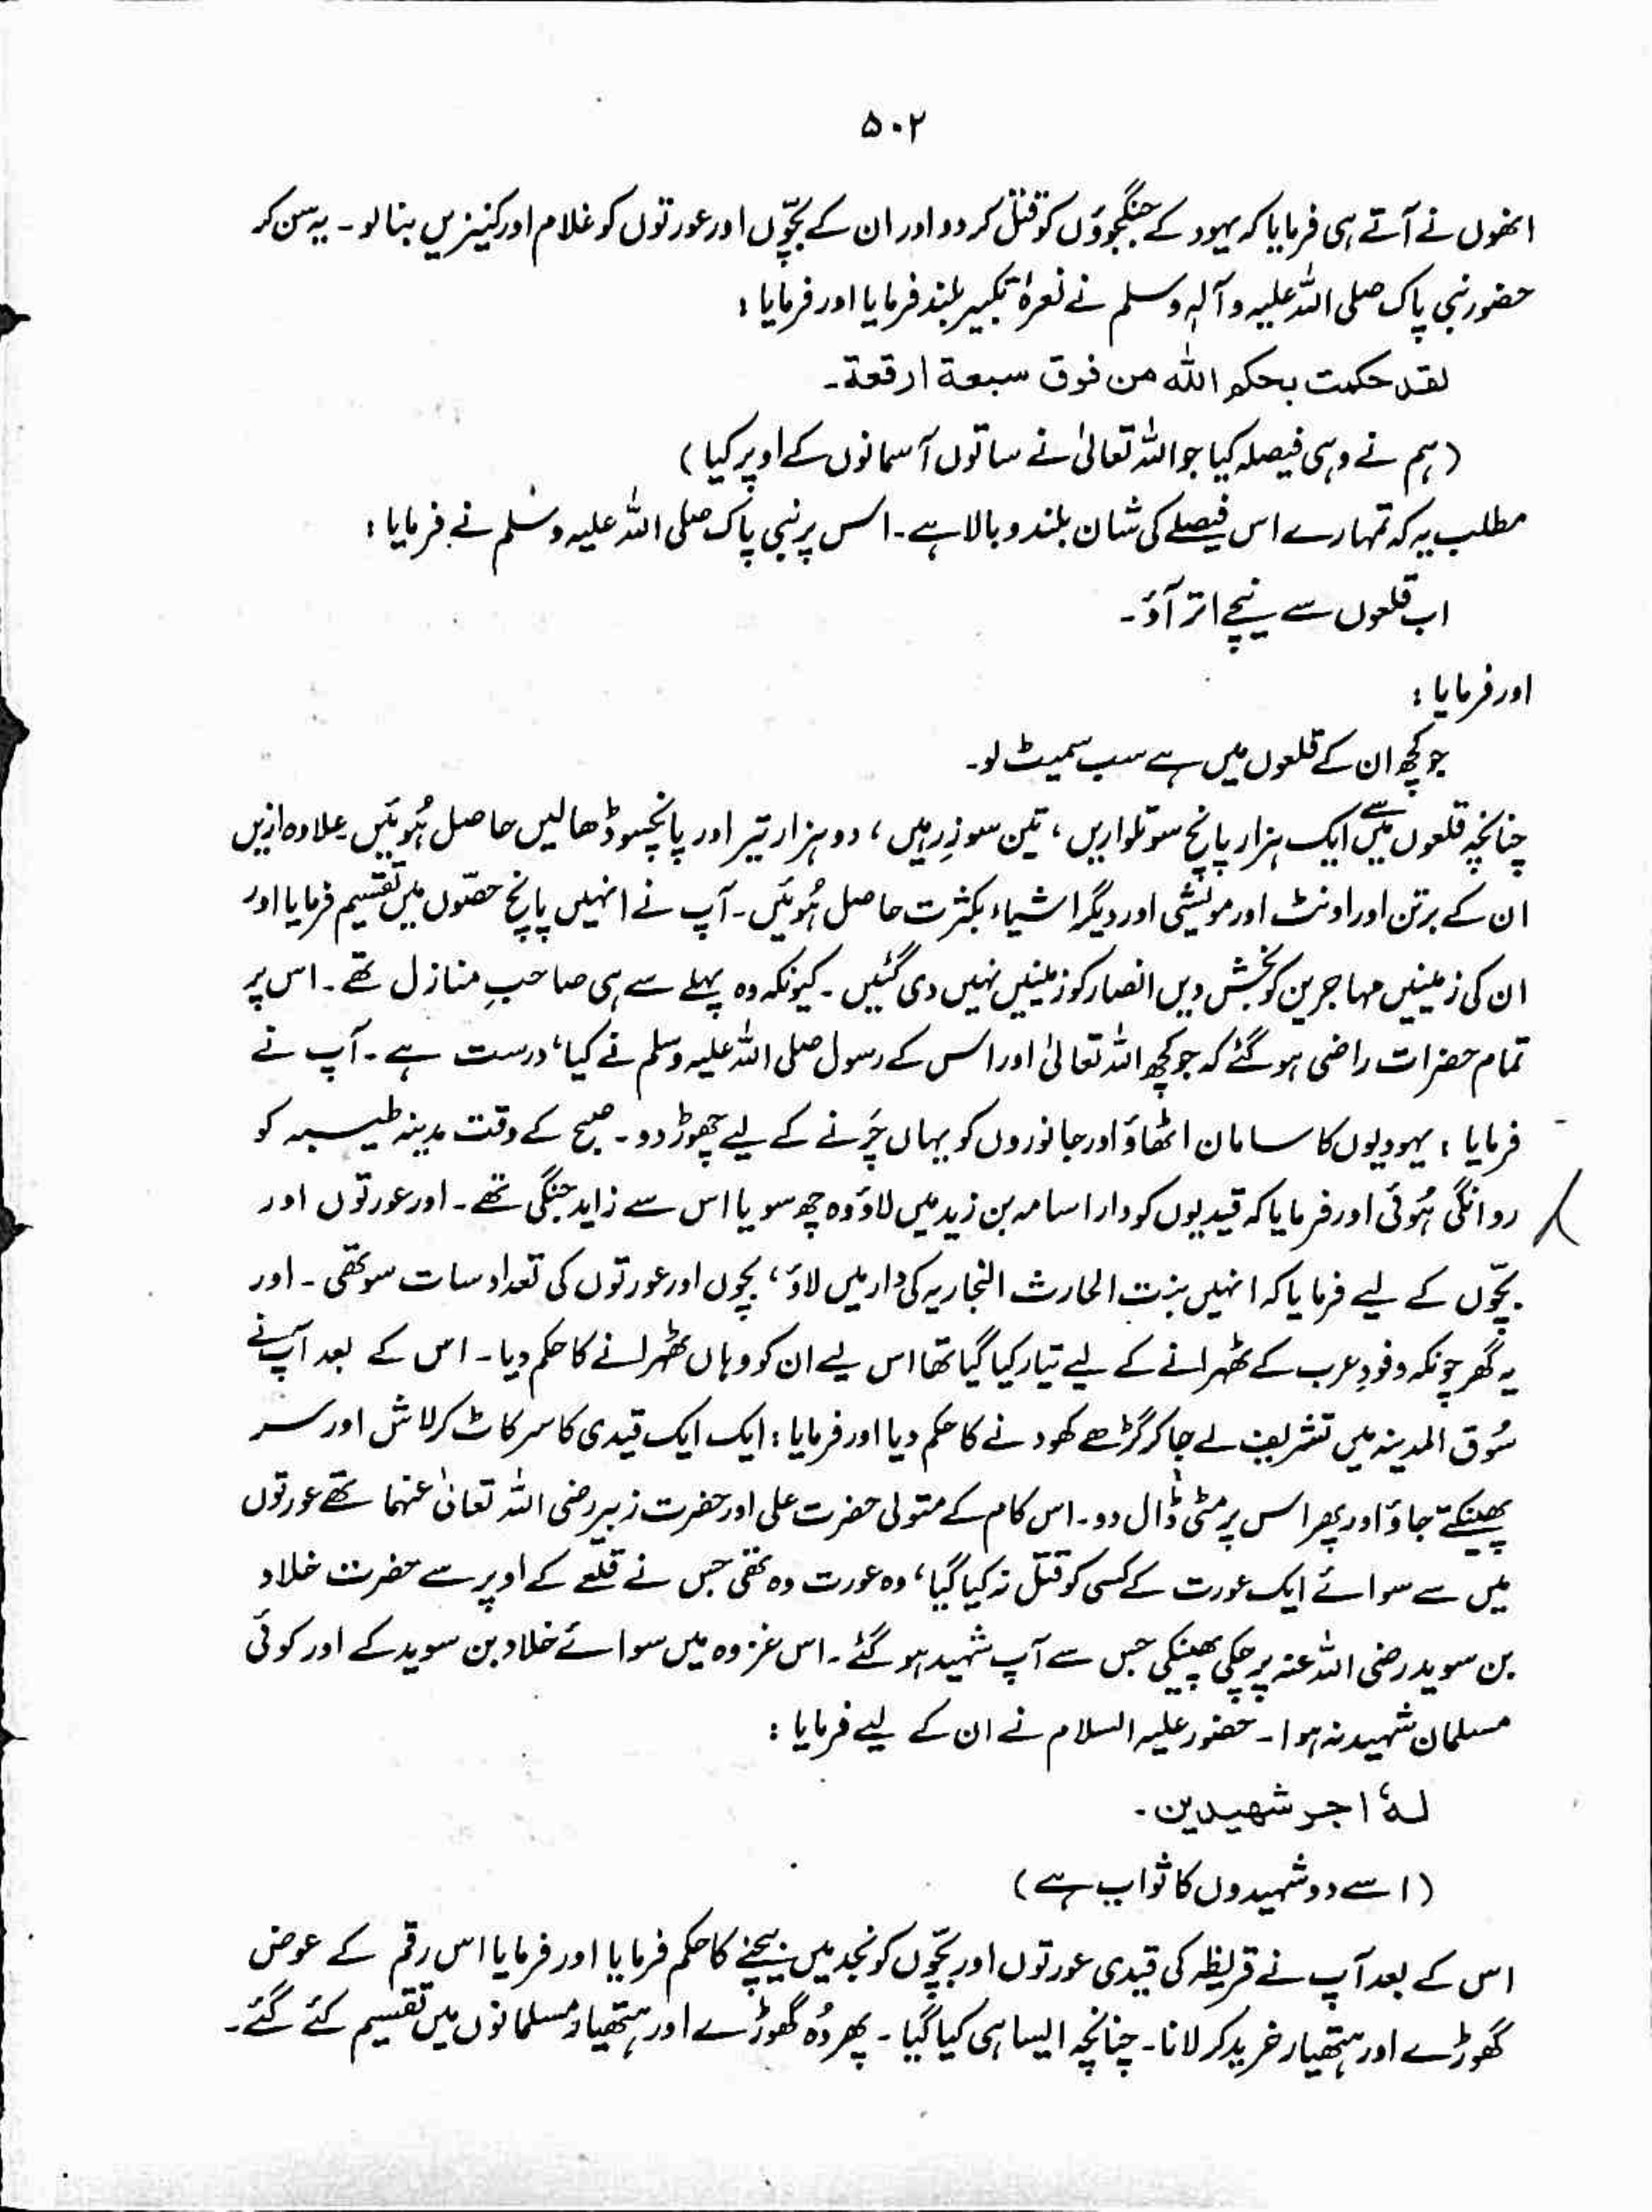 ۵۰۲
انھوں نے آتے ہی فرمایا کہ یہود کے جنگجوؤں کو قتل کر دو اور ان کے بچّوں اور عورتوں کو غلام اور کنیزیں بنا لو۔ یہ سن کر
حضور نبی پاک صلی اللہ علیہ وآلہٖ وسلم نے نعرۂ تکبیر بلند فرمایا اور فرمایا :
لقد حکمت بحکم اللہ من فوق سبعة ارقعة۔
(ہم نے وہی فیصلہ کیا جو اللہ تعالیٰ نے ساتوں آسمانوں کے اوپر کیا)
مطلب یہ کہ تمہارے اس فیصلے کی شان بلند و بالا ہے۔ اس پر نبی پاک صلی اللہ علیہ وسلم نے فرمایا :
اب قلعوں سے نیچے اتر آؤ۔
اور فرمایا :
جو کچھ ان کے قلعوں میں ہے سب سمیٹ لو۔
چنانچہ قلعوں میں سے ایک ہزار پانچ سو تلواریں ، تین سو زِرہیں ، دو ہزار تیر اور پانچسو ڈھالیں حاصل ہُوئیں۔ علاوہ ازیں
ان کے برتن اور اونٹ اور مویشی اور دیگر اشیاء بکثرت حاصل ہُوئیں۔ آپ نے انہیں پانچ حصّوں میں تقسیم فرمایا اور
ان کی زمینیں مہاجرین کو بخش دیں انصار کو زمینیں نہیں دی گئیں۔ کیونکہ وہ پہلے سے ہی صاحبِ منازل تھے۔ اس پر
تمام حضرات راضی ہو گئے کہ جو کچھ اللہ تعالیٰ اور اس کے رسول صلی اللہ علیہ وسلم نے کیا، درست ہے۔ آپ نے
فرمایا : یہودیوں کا سامان اٹھاؤ اور جانوروں کو یہاں چَرنے کے لیے چھوڑ دو۔ صبح کے وقت مدینہ طیبہ کو
روانگی ہُوئی اور فرمایا کہ قیدیوں کو دار اسامہ بن زید میں لاؤ وہ چھ سو یا اس سے زاید جنگی تھے۔ اور عورتوں اور
بچّوں کے لیے فرمایا کہ انہیں بنت الحارث النجاریہ کی دار میں لاؤ، بچوں اور عورتوں کی تعداد سات سو تھی۔ اور
یہ گھر چونکہ وفودِ عرب کے ٹھہرانے کے لیے تیار کیا گیا تھا اس لیے ان کو وہاں ٹھہرانے کا حکم دیا۔ اس کے بعد آپ نے
سُوق المدینہ میں تشریف لے جا کر گڑھے کھودنے کا حکم دیا اور فرمایا : ایک ایک قیدی کا سر کاٹ کر لاش اور سر
پھینکتے جاؤ اور پھر اس پر مٹی ڈال دو۔ اس کام کے متولی حضرت علی اور حضرت زبیر رضی اللہ تعالیٰ عنہما تھے عورتوں
میں سے سوائے ایک عورت کے کسی کو قتل نہ کیا گیا، وہ عورت وہ تھی جس نے قلعے کے اوپر سے حضرت خلاد
بن سوید رضی اللہ عنہ پر چکی پھینکی جس سے آپ شہید ہو گئے۔ اس غزوہ میں سوائے خلاد بن سوید کے اور کوئی
مسلمان شہید نہ ہوا۔ حضور علیہ السلام نے ان کے لیے فرمایا :
لہٗ اجر شھیدین۔
(اسے دو شہیدوں کا ثواب ہے)
اس کے بعد آپ نے قریظہ کی قیدی عورتوں اور بچّوں کو نجد میں بیچنے کا حکم فرمایا اور فرمایا اس رقم کے عوض
گھوڑے اور ہتھیار خرید کر لانا۔ چنانچہ ایسا ہی کیا گیا۔ پھر وُہ گھوڑے اور ہتھیار مسلمانوں میں تقسیم کئے گئے۔